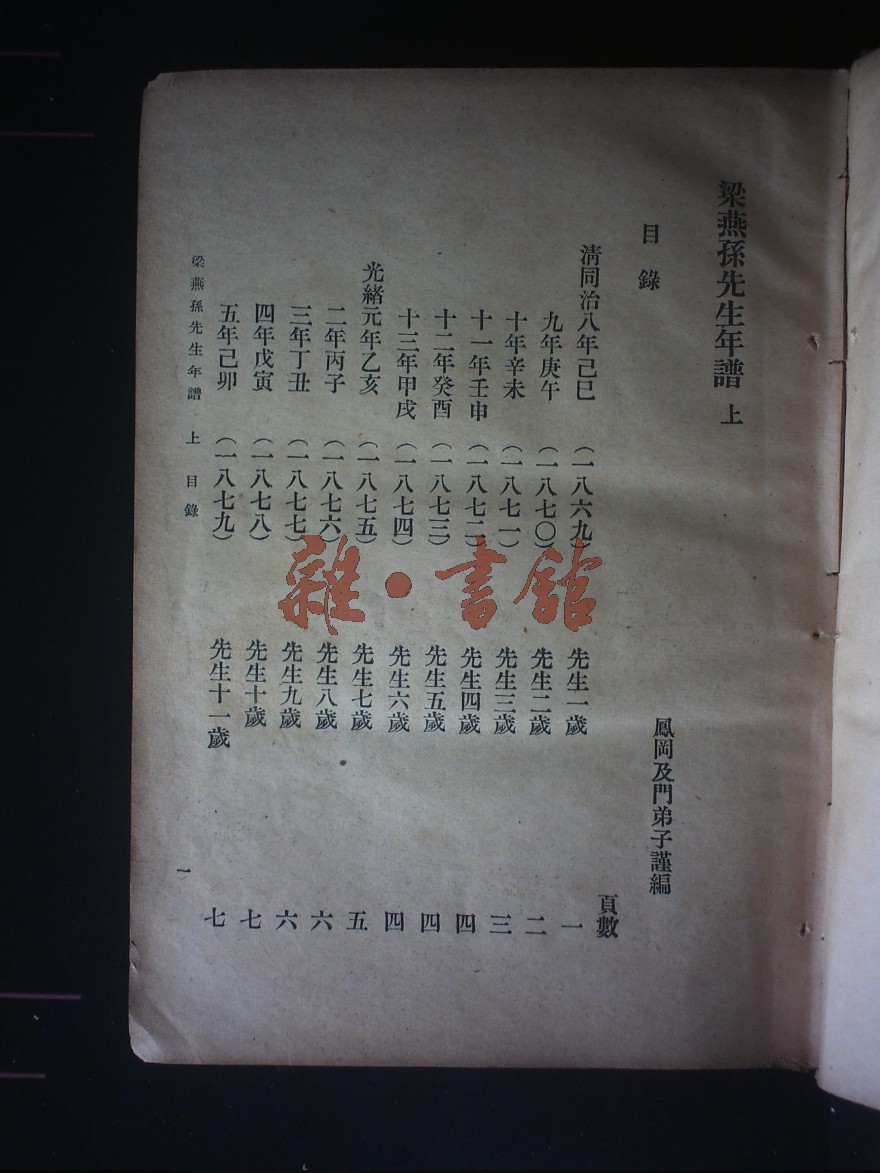 梁燕孫先生年譜 上
目錄
鳳岡及門弟子謹編
頁數
清同治八年己巳 (一八六九) 先生一歲 一
九年庚午 (一八七〇) 先生二歲 二
十年辛未 (一八七一) 先生三歲 三
十一年壬申 (一八七二) 先生四歲 四
十二年癸酉 (一八七三) 先生五歲 四
十三年甲戌 (一八七四) 先生六歲 四
光緒元年乙亥 (一八七五) 先生七歲 五
二年丙子 (一八七六) 先生八歲 六
三年丁丑 (一八七七) 先生九歲 六
四年戊寅 (一八七八) 先生十歲 七
五年己卯 (一八七九) 先生十一歲 七
梁燕孫先生年譜 上 目錄 一
雜·書館